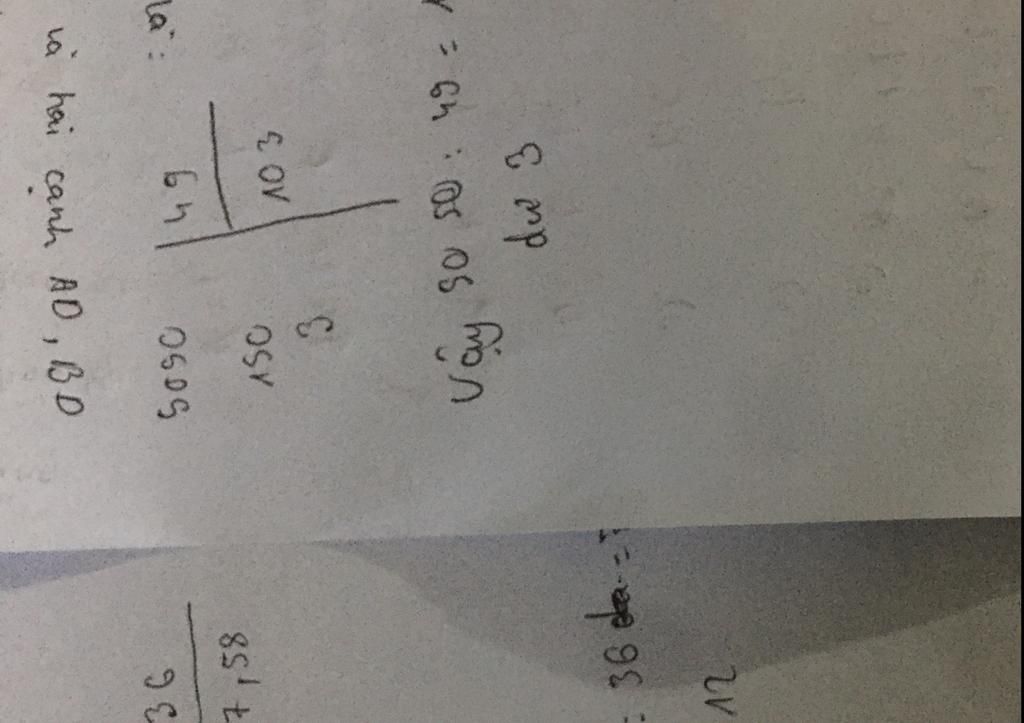 và hai cạnh AD, BD
là:
5050 49
150 103
3
Vậy 50 50 : 49 = 1
dư 3
36
7,58
: 36 =
12